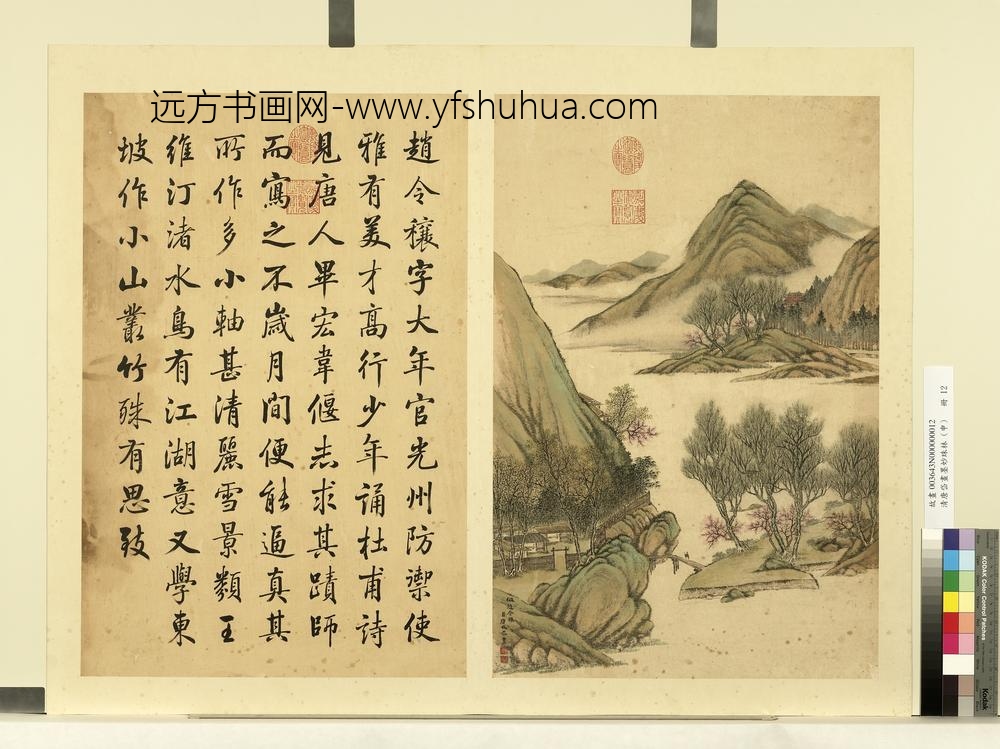 远方书画网-www.yfshuhua.com
趙令穰字大年官光州防禦使
雅有美才高行少年誦杜甫詩
見唐人畢宏韋偃志求其蹟師
而寫之不歲月間便能逼真其
所作多小軸甚清麗雪景類王
維汀渚水鳥有江湖意又學東
坡作小山叢竹殊有思致
故畫003643N000000012
清唐岱畫墨妙珠林(申) 冊 12
KODAK Color Control Patches
Kodak